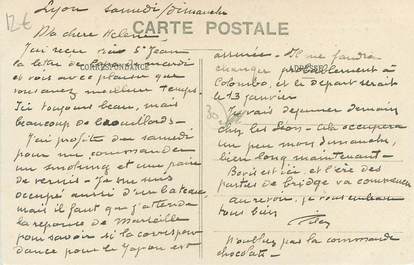 12€
Lyon samedi/dimanche
CARTE POSTALE
Ma chère Hélène
CORRESPONDANCE
J'ai reçu St Jean
la lettre de mardi
et vois avec plaisir que
vous avez meilleur temps.
Ici toujours beau, mais
beaucoup de brouillards -
J'ai profité du samedi
pour me commander
un smoking et une paire
de vernis - Je me suis
occupé aussi d'un bateau,
mais il faut que j'attende
la réponse de Marseille
pour savoir si la correspon
dance pour le Japon est
assurée - Il me faudra
changer probablement à
ADRESSE
Colombo, et le départ serait
le 13 janvier
30
Je vais déjeuner demain
chez les - cela occupera
un peu mon dimanche,
bien long maintenant -
Boris est ici et l'ère des
parties de bridge va commencer
au revoir, je vous
tous bien
N'oubliez pas la commande
chocolats -